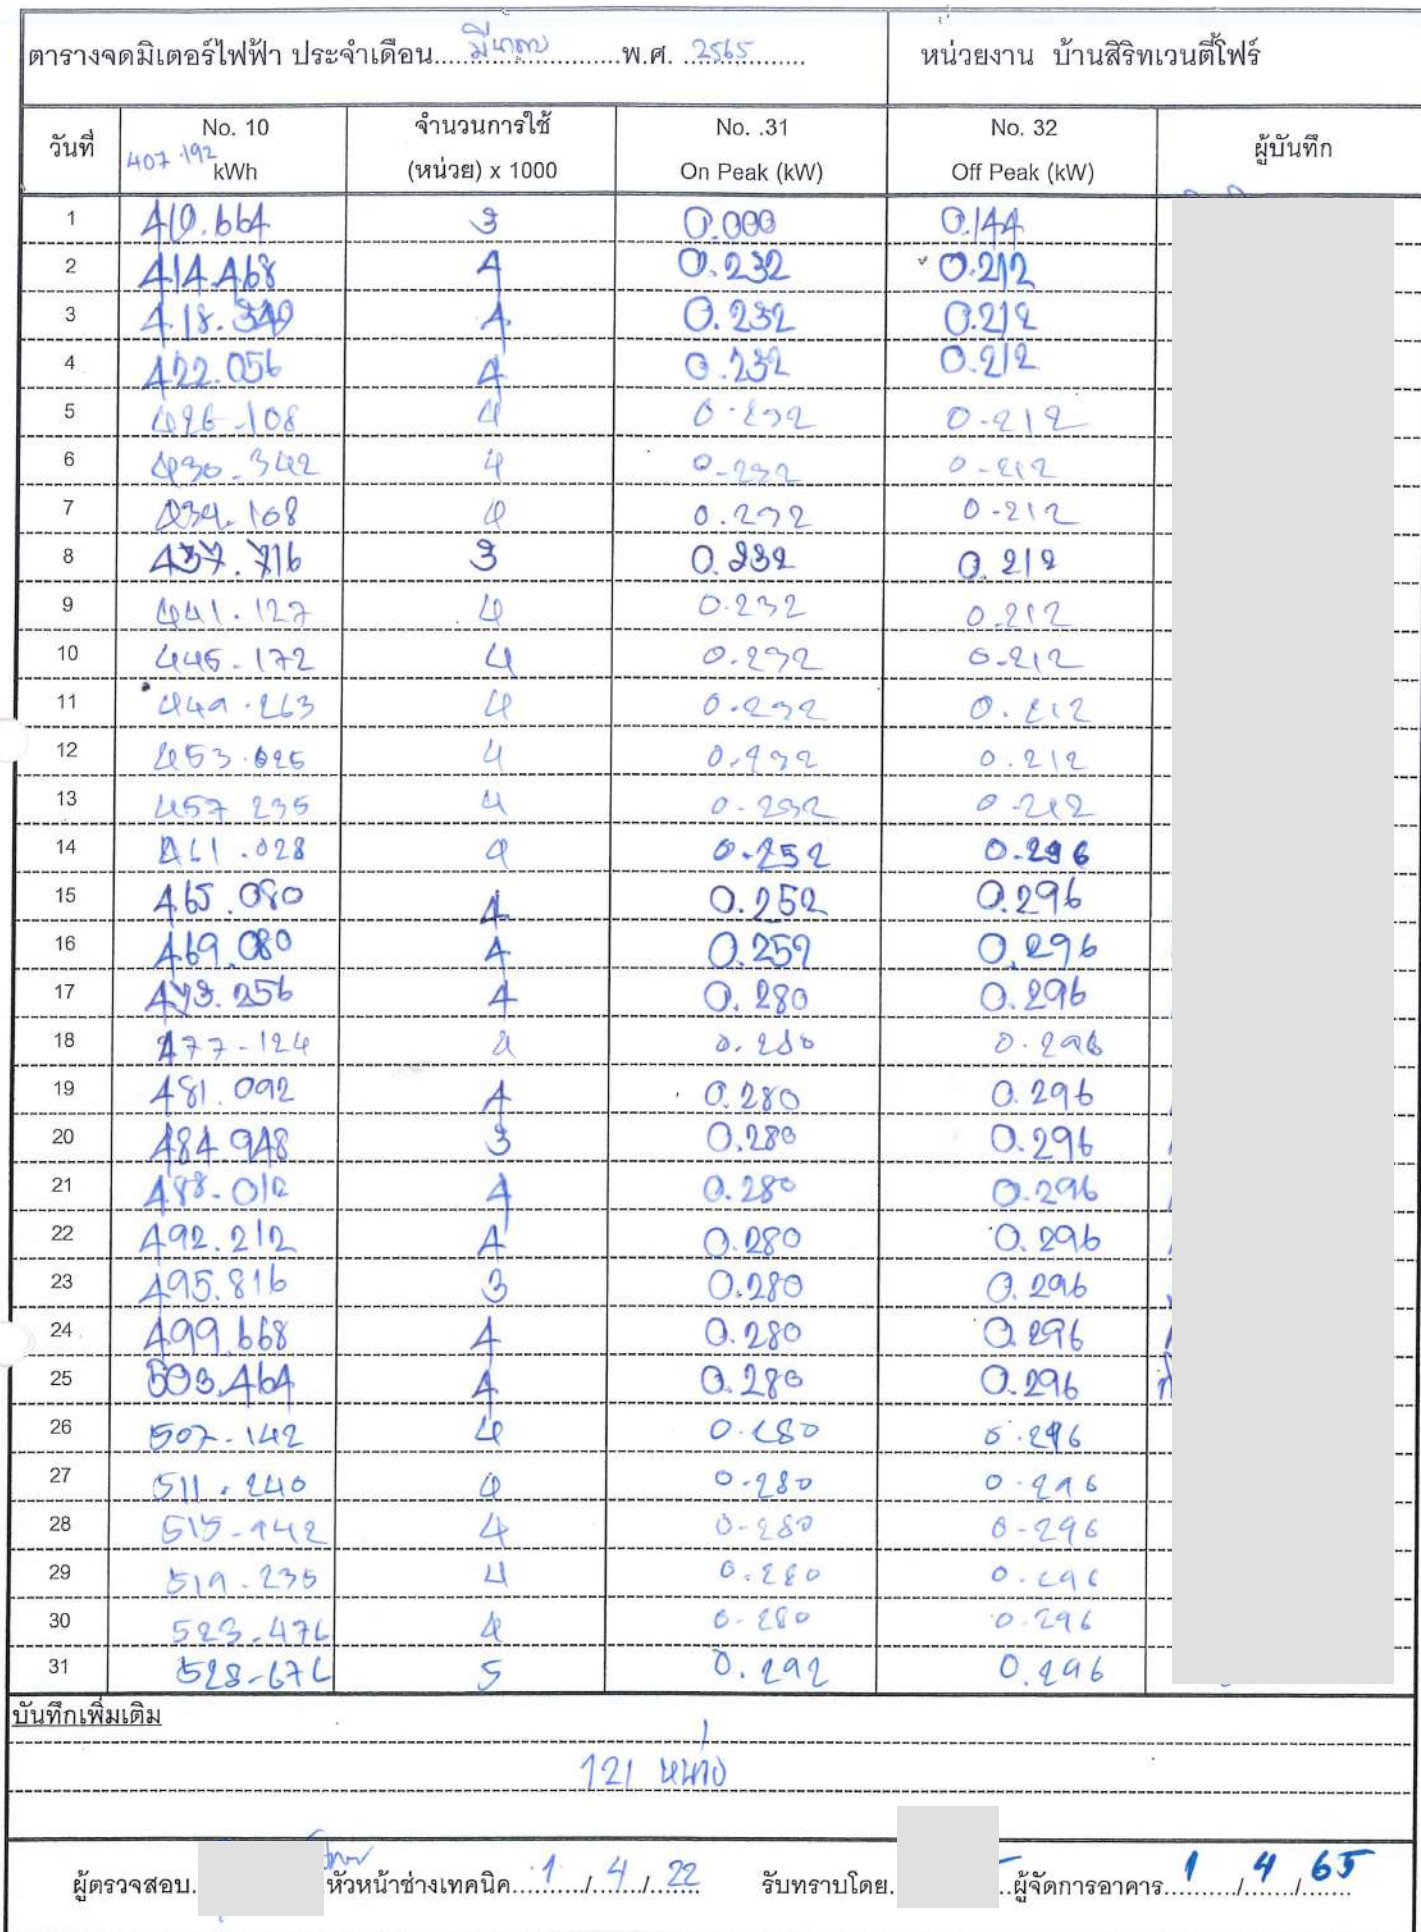 ตารางจดมิเตอร์ไฟฟ้า ประจำเดือน....มีนาคม....พ.ศ. ..2565.. หน่วยงาน บ้านสิริทเวนตี้โฟร์
วันที่ No. 10 407.192 kWh จำนวนการใช้ (หน่วย) x 1000 No. .31 On Peak (kW) No. 32 Off Peak (kW) ผู้บันทึก
1 410.664 3 0.000 0.144
2 414.468 4 0.232 0.212
3 418.340 4 0.232 0.212
4 422.056 4 0.232 0.212
5 426-108 4 0-232 0-212
6 430-342 4 0-232 0-212
7 434.108 4 0.232 0-212
8 437.716 3 0.232 0.212
9 441.127 4 0.232 0.212
10 445-172 4 0.232 0-212
11 449.263 4 0.232 0.212
12 453.025 4 0.232 0.212
13 457 235 4 0-232 0-212
14 461.028 4 0.252 0.296
15 465.080 4 0.252 0.296
16 469.080 4 0.252 0.296
17 473.256 4 0.280 0.296
18 477-124 4 0.280 0.296
19 481.092 4 0.280 0.296
20 484 948 3 0.280 0.296
21 488.012 4 0.280 0.296
22 492.212 4 0.280 0.296
23 495.816 3 0.280 0.296
24 499.668 4 0.280 0.296
25 503.464 4 0.280 0.296
26 507-142 4 0.280 0.296
27 511.240 4 0-280 0.296
28 515-142 4 0-280 0-296
29 519-235 4 0.280 0.296
30 523-476 4 0-280 0-296
31 528-676 5 0.292 0.296
บันทึกเพิ่มเติม
121 หน่วย
ผู้ตรวจสอบ. .หัวหน้าช่างเทคนิค....1..../..4../..22.. รับทราบโดย. ..ผู้จัดการอาคาร....1..../..4../..65..